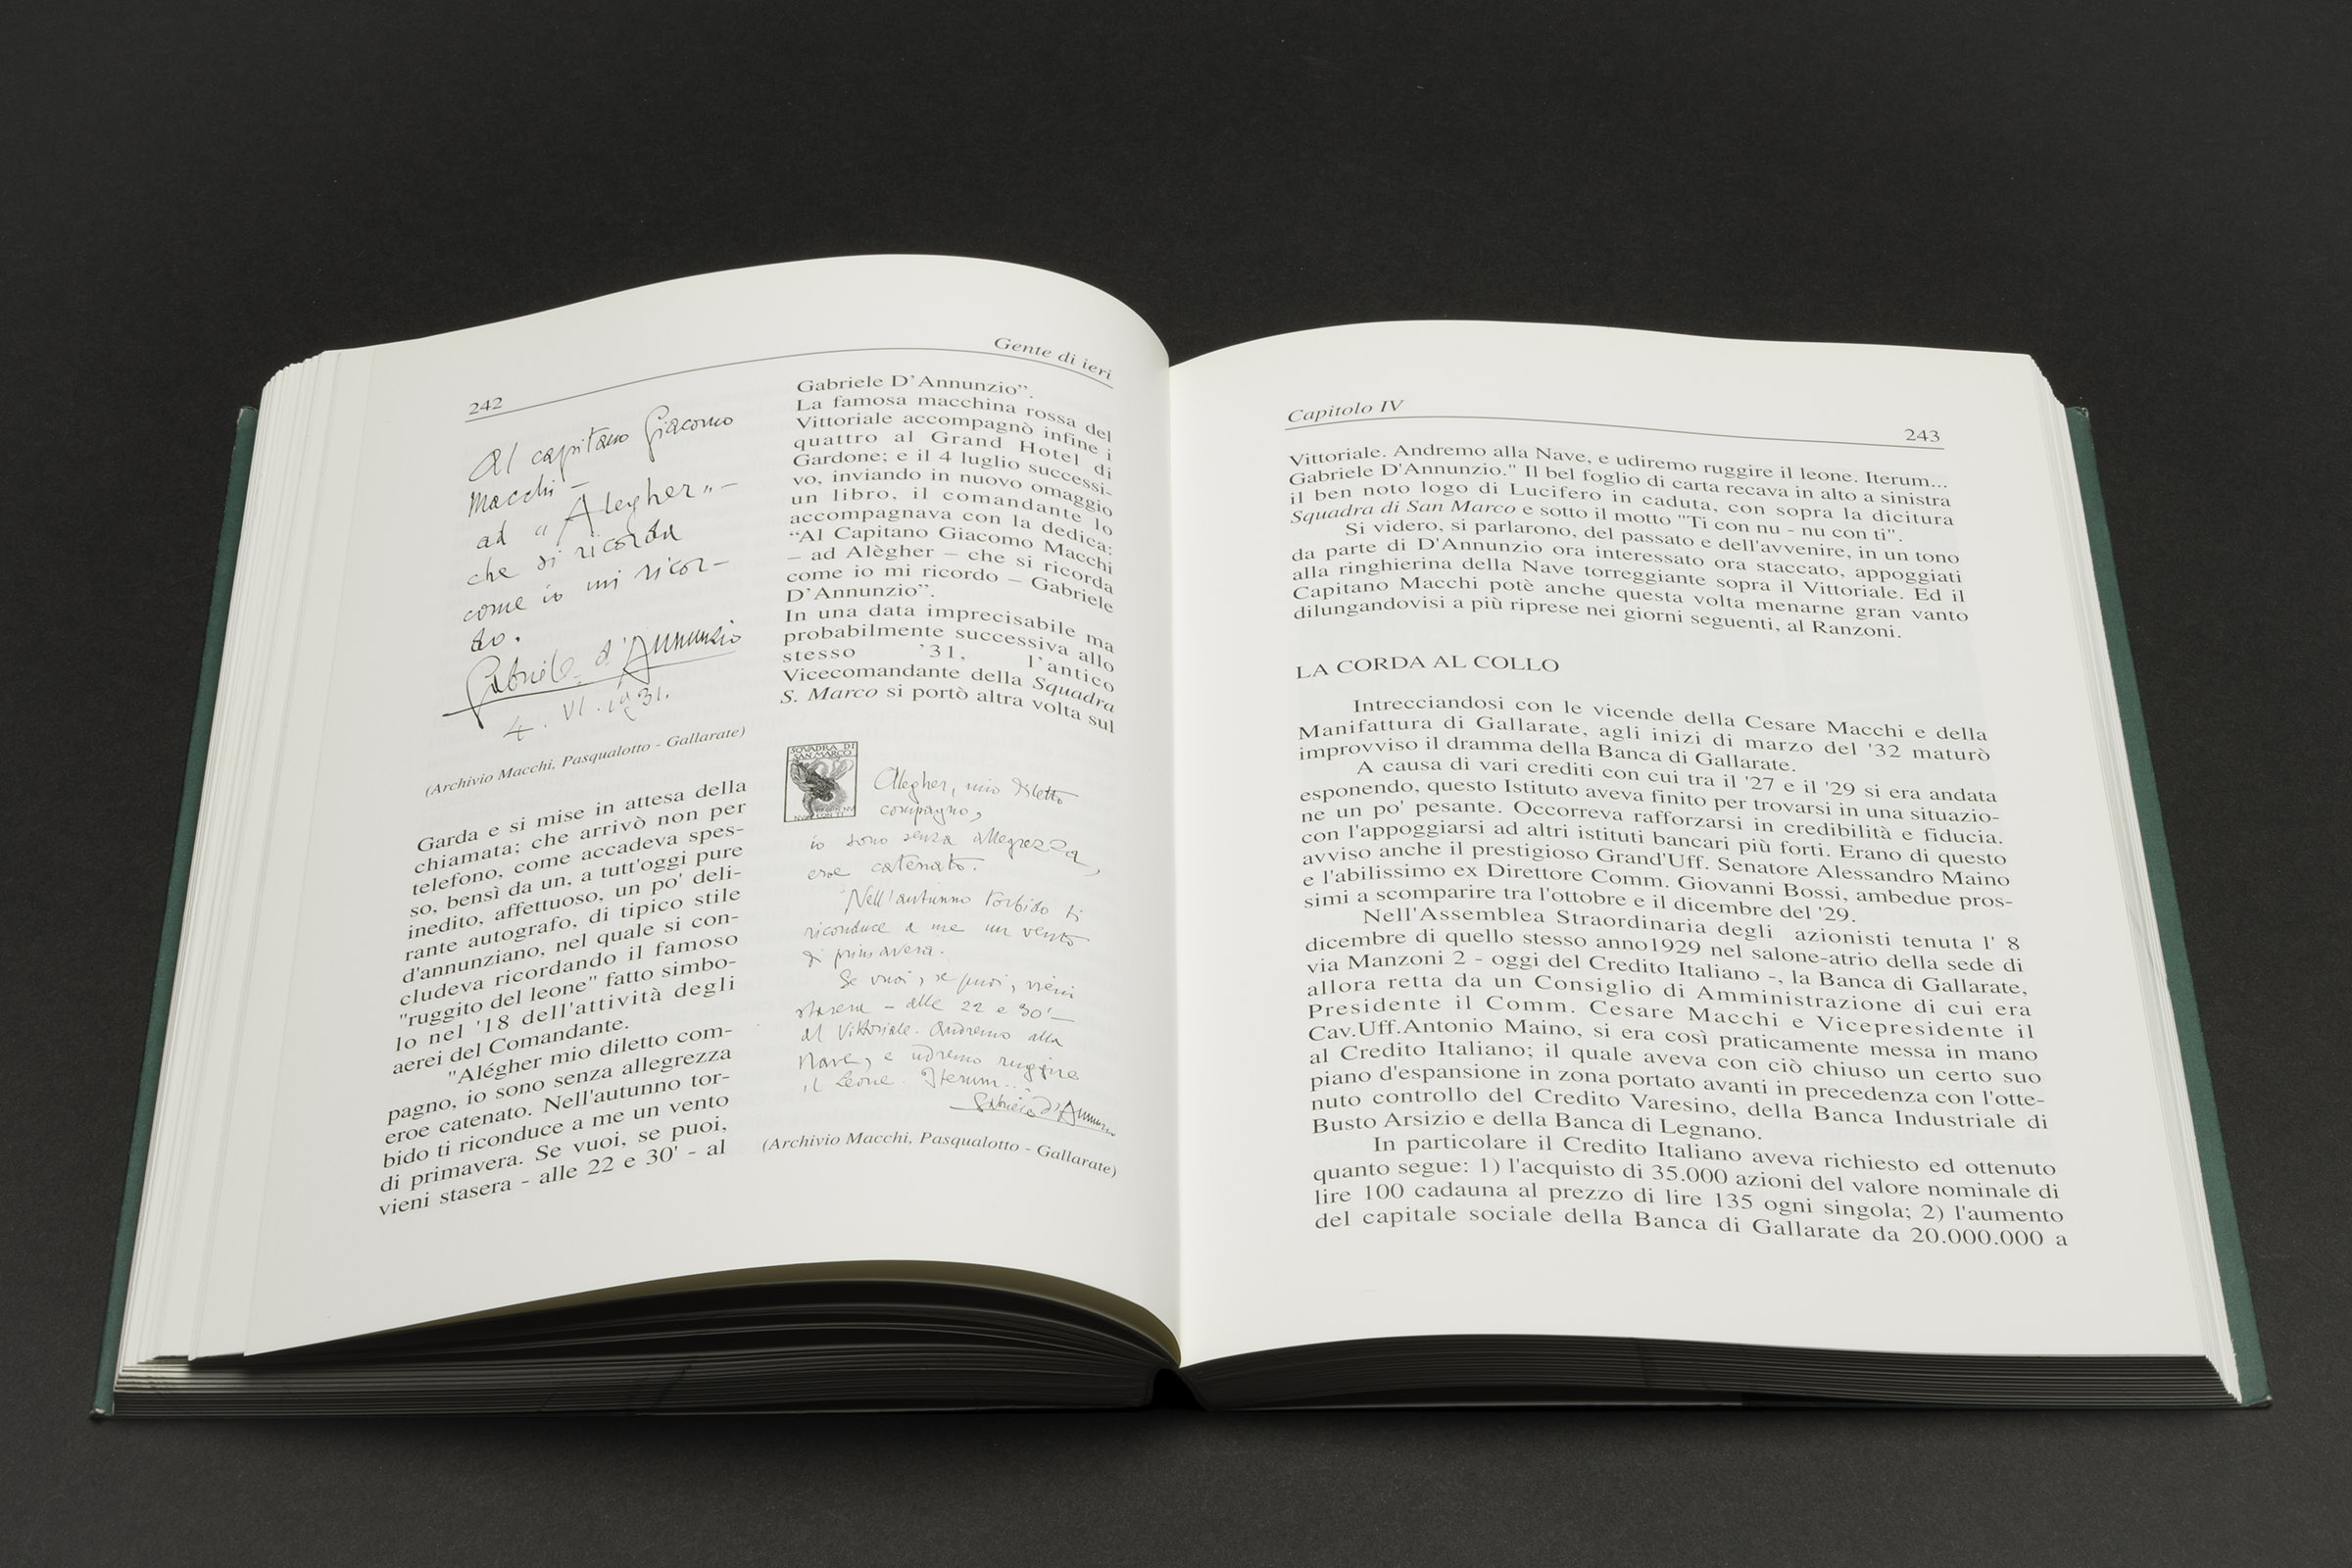 242
Gente di ieri
Al capitano Giacomo
Macchi –
ad "Alegher" –
che si ricorda
come io mi ricor–
do.
Gabriele d'Annunzio
4. VI. 1931.
(Archivio Macchi, Pasqualotto - Gallarate)
Gabriele D'Annunzio”.
La famosa macchina rossa del
Vittoriale accompagnò infine i
quattro al Grand Hotel di
Gardone; e il 4 luglio successi-
vo, inviando in nuovo omaggio
un libro, il comandante lo
accompagnava con la dedica:
“Al Capitano Giacomo Macchi
– ad Alègher – che si ricorda
come io mi ricordo – Gabriele
D'Annunzio”.
In una data imprecisabile ma
probabilmente successiva allo
stesso '31, l'antico
Vicecomandante della Squadra
S. Marco si portò altra volta sul
Garda e si mise in attesa della
chiamata; che arrivò non per
telefono, come accadeva spes-
so, bensì da un, a tutt'oggi pure
inedito, affettuoso, un po' deli-
rante autografo, di tipico stile
d'annunziano, nel quale si con-
cludeva ricordando il famoso
"ruggito del leone" fatto simbo-
lo nel '18 dell'attività degli
aerei del Comandante.
"Alégher mio diletto com-
pagno, io sono senza allegrezza
eroe catenato. Nell'autunno tor-
bido ti riconduce a me un vento
di primavera. Se vuoi, se puoi,
vieni stasera - alle 22 e 30' - al
SQVADRA DI
SAN MARCO
Alegher, mio diletto
compagno,
io sono senza allegrezza,
eroe catenato.
Nell'autunno torbido ti
riconduce a me un vento
di primavera.
Se vuoi, se puoi, vieni
stasera – alle 22 e 30' –
al Vittoriale. Andremo alla
Nave, e udremo ruggire
il Leone. Iterum...
Gabriele d'Annunzio
(Archivio Macchi, Pasqualotto - Gallarate)
Capitolo IV
243
Vittoriale. Andremo alla Nave, e udiremo ruggire il leone. Iterum...
Gabriele D'Annunzio." Il bel foglio di carta recava in alto a sinistra
il ben noto logo di Lucifero in caduta, con sopra la dicitura
Squadra di San Marco e sotto il motto "Ti con nu - nu con ti".
Si videro, si parlarono, del passato e dell'avvenire, in un tono
da parte di D'Annunzio ora interessato ora staccato, appoggiati
alla ringhierina della Nave torreggiante sopra il Vittoriale. Ed il
Capitano Macchi potè anche questa volta menarne gran vanto
dilungandovisi a più riprese nei giorni seguenti, al Ranzoni.
LA CORDA AL COLLO
Intrecciandosi con le vicende della Cesare Macchi e della
Manifattura di Gallarate, agli inizi di marzo del '32 maturò
improvviso il dramma della Banca di Gallarate.
A causa di vari crediti con cui tra il '27 e il '29 si era andata
esponendo, questo Istituto aveva finito per trovarsi in una situazio-
ne un po' pesante. Occorreva rafforzarsi in credibilità e fiducia.
con l'appoggiarsi ad altri istituti bancari più forti. Erano di questo
avviso anche il prestigioso Grand'Uff. Senatore Alessandro Maino
e l'abilissimo ex Direttore Comm. Giovanni Bossi, ambedue pros-
simi a scomparire tra l'ottobre e il dicembre del '29.
Nell'Assemblea Straordinaria degli azionisti tenuta l' 8
dicembre di quello stesso anno1929 nel salone-atrio della sede di
via Manzoni 2 - oggi del Credito Italiano -, la Banca di Gallarate,
allora retta da un Consiglio di Amministrazione di cui era
Presidente il Comm. Cesare Macchi e Vicepresidente il
Cav.Uff.Antonio Maino, si era così praticamente messa in mano
al Credito Italiano; il quale aveva con ciò chiuso un certo suo
piano d'espansione in zona portato avanti in precedenza con l'otte-
nuto controllo del Credito Varesino, della Banca Industriale di
Busto Arsizio e della Banca di Legnano.
In particolare il Credito Italiano aveva richiesto ed ottenuto
quanto segue: 1) l'acquisto di 35.000 azioni del valore nominale di
lire 100 cadauna al prezzo di lire 135 ogni singola; 2) l'aumento
del capitale sociale della Banca di Gallarate da 20.000.000 a